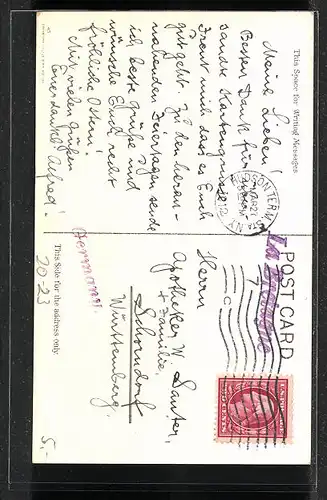 This Space for Writing Messages
Meine Lieben!
Besten Dank für die über-
sandte Kartengrüsse,
Freut mich dass es Euch
gut geht. Zu den heran-
nahenden Feiertagen sende
ich beste Grüsse und
wünsche Euch recht
fröhliche Ostern!
Mit vielen Grüssen
Euer dankb. Alfred!
POST CARD
La
Germany.
Herrn
Apotheker W. Sauter,
+ Familie,
Schorndorf
Württemberg.
This Side for the address only.
20-23
5,-
HUDSON TERM
N.Y.
C
U.S. POSTAGE
2 CENTS 2